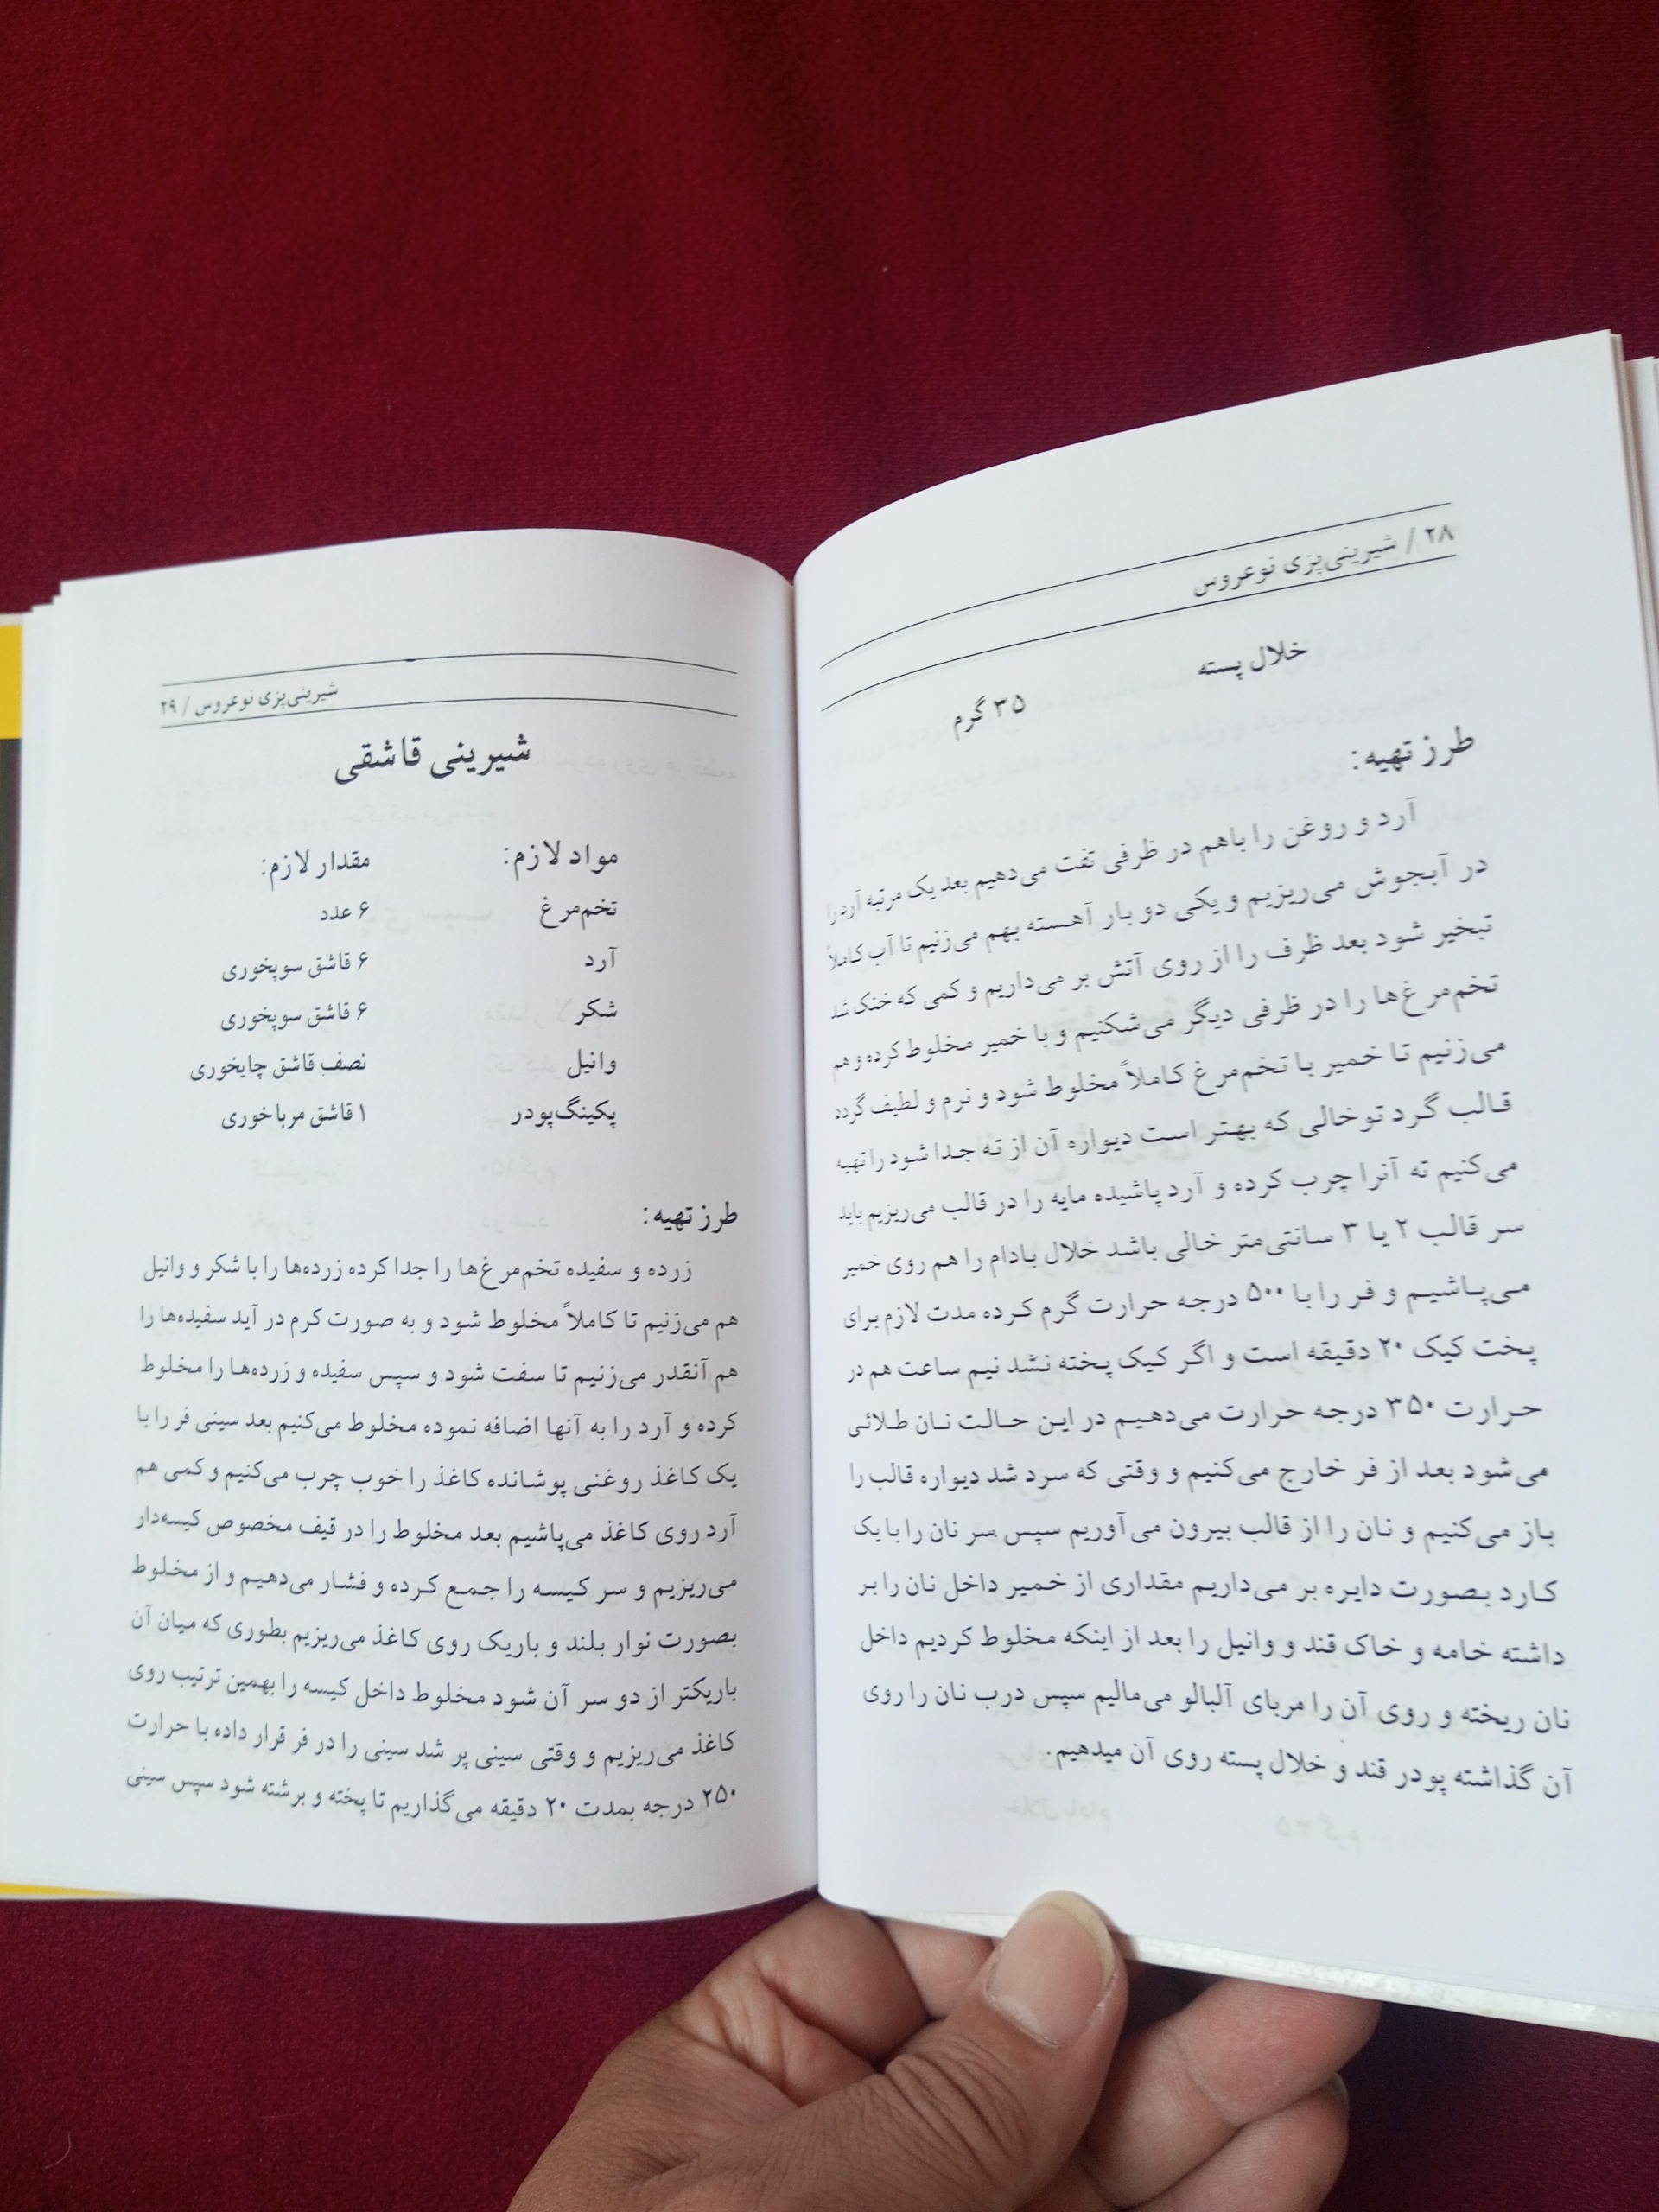 ۲۸ / شیرینی‌پزی نوعروس
خلال پسته
۳۵ گرم
طرز تهیه:
آرد و روغن را باهم در ظرفی تفت می‌دهیم بعد یک مرتبه آرد را
در آبجوش می‌ریزیم و یکی دو بار آهسته بهم می‌زنیم تا آب کاملاً
تبخیر شود بعد ظرف را از روی آتش بر می‌داریم و کمی که خنک شد
تخم‌مرغ‌ها را در ظرفی دیگر می‌شکنیم و با خمیر مخلوط کرده و هم
می‌زنیم تا خمیر با تخم‌مرغ کاملاً مخلوط شود و نرم و لطیف گردد
قالب گرد توخالی که بهتر است دیواره آن از ته جدا شود را تهیه
می‌کنیم ته آنرا چرب کرده و آرد پاشیده مایه را در قالب می‌ریزیم باید
سر قالب ۲ یا ۳ سانتی‌متر خالی باشد خلال بادام را هم روی خمیر
می‌پاشیم و فر را با ۵۰۰ درجه حرارت گرم کرده مدت لازم برای
پخت کیک ۲۰ دقیقه است و اگر کیک پخته نشد نیم ساعت هم در
حرارت ۳۵۰ درجه حرارت می‌دهیم در این حالت نان طلائی
می‌شود بعد از فر خارج می‌کنیم و وقتی که سرد شد دیواره قالب را
باز می‌کنیم و نان را از قالب بیرون می‌آوریم سپس سر نان را با یک
کارد بصورت دایره بر می‌داریم مقداری از خمیر داخل نان را بر
داشته خامه و خاک قند و وانیل را بعد از اینکه مخلوط کردیم داخل
نان ریخته و روی آن را مربای آلبالو می‌مالیم سپس درب نان را روی
آن گذاشته پودر قند و خلال پسته روی آن میدهیم.
شیرینی‌پزی نوعروس / ۲۹
شیرینی قاشقی
مواد لازم: مقدار لازم:
تخم‌مرغ ۶ عدد
آرد ۶ قاشق سوپخوری
شکر ۶ قاشق سوپخوری
وانیل نصف قاشق چایخوری
پکینگ‌پودر ۱ قاشق مرباخوری
طرز تهیه:
زرده و سفیده تخم‌مرغ‌ها را جدا کرده زرده‌ها را با شکر و وانیل
هم می‌زنیم تا کاملاً مخلوط شود و به صورت کرم در آید سفیده‌ها را
هم آنقدر می‌زنیم تا سفت شود و سپس سفیده و زرده‌ها را مخلوط
کرده و آرد را به آنها اضافه نموده مخلوط می‌کنیم بعد سینی فر را با
یک کاغذ روغنی پوشانده کاغذ را خوب چرب می‌کنیم و کمی هم
آرد روی کاغذ می‌پاشیم بعد مخلوط را در قیف مخصوص کیسه‌دار
می‌ریزیم و سر کیسه را جمع کرده و فشار می‌دهیم و از مخلوط
بصورت نوار بلند و باریک روی کاغذ می‌ریزیم بطوری که میان آن
باریکتر از دو سر آن شود مخلوط داخل کیسه را بهمین ترتیب روی
کاغذ می‌ریزیم و وقتی سینی پر شد سینی را در فر قرار داده با حرارت
۲۵۰ درجه بمدت ۲۰ دقیقه می‌گذاریم تا پخته و برشته شود سپس سینی